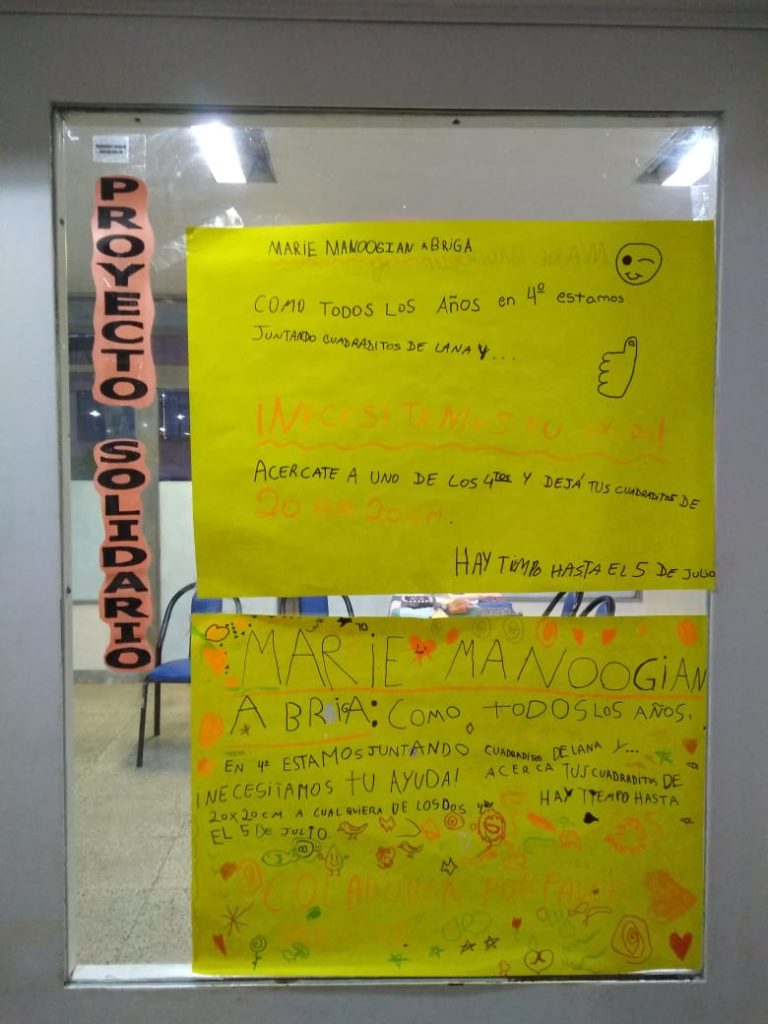 PROYECTO SOLIDARIO
MARIE MANOOGIAN ABRIGA
COMO TODOS LOS AÑOS en 4º estamos
JUNTANDO CUADRADITOS DE LANA Y...
¡NECESITAMOS TU AYUDA!
ACERCATE A UNO DE LOS 4tos Y DEJÁ TUS CUADRADITOS DE
20 POR 20 CM.
HAY TIEMPO HASTA EL 5 DE JULIO
MARIE MANOOGIAN
ABRIGA: COMO TODOS LOS AÑOS,
EN 4º ESTAMOS JUNTANDO CUADRADITOS DE LANA Y...
¡NECESITAMOS TU AYUDA! ACERCA TUS CUADRADITOS DE
20X20 CM A CUALQUIERA DE LOS DOS 4º HAY TIEMPO HASTA
EL 5 DE JULIO
COLABOREN POR FAVOR